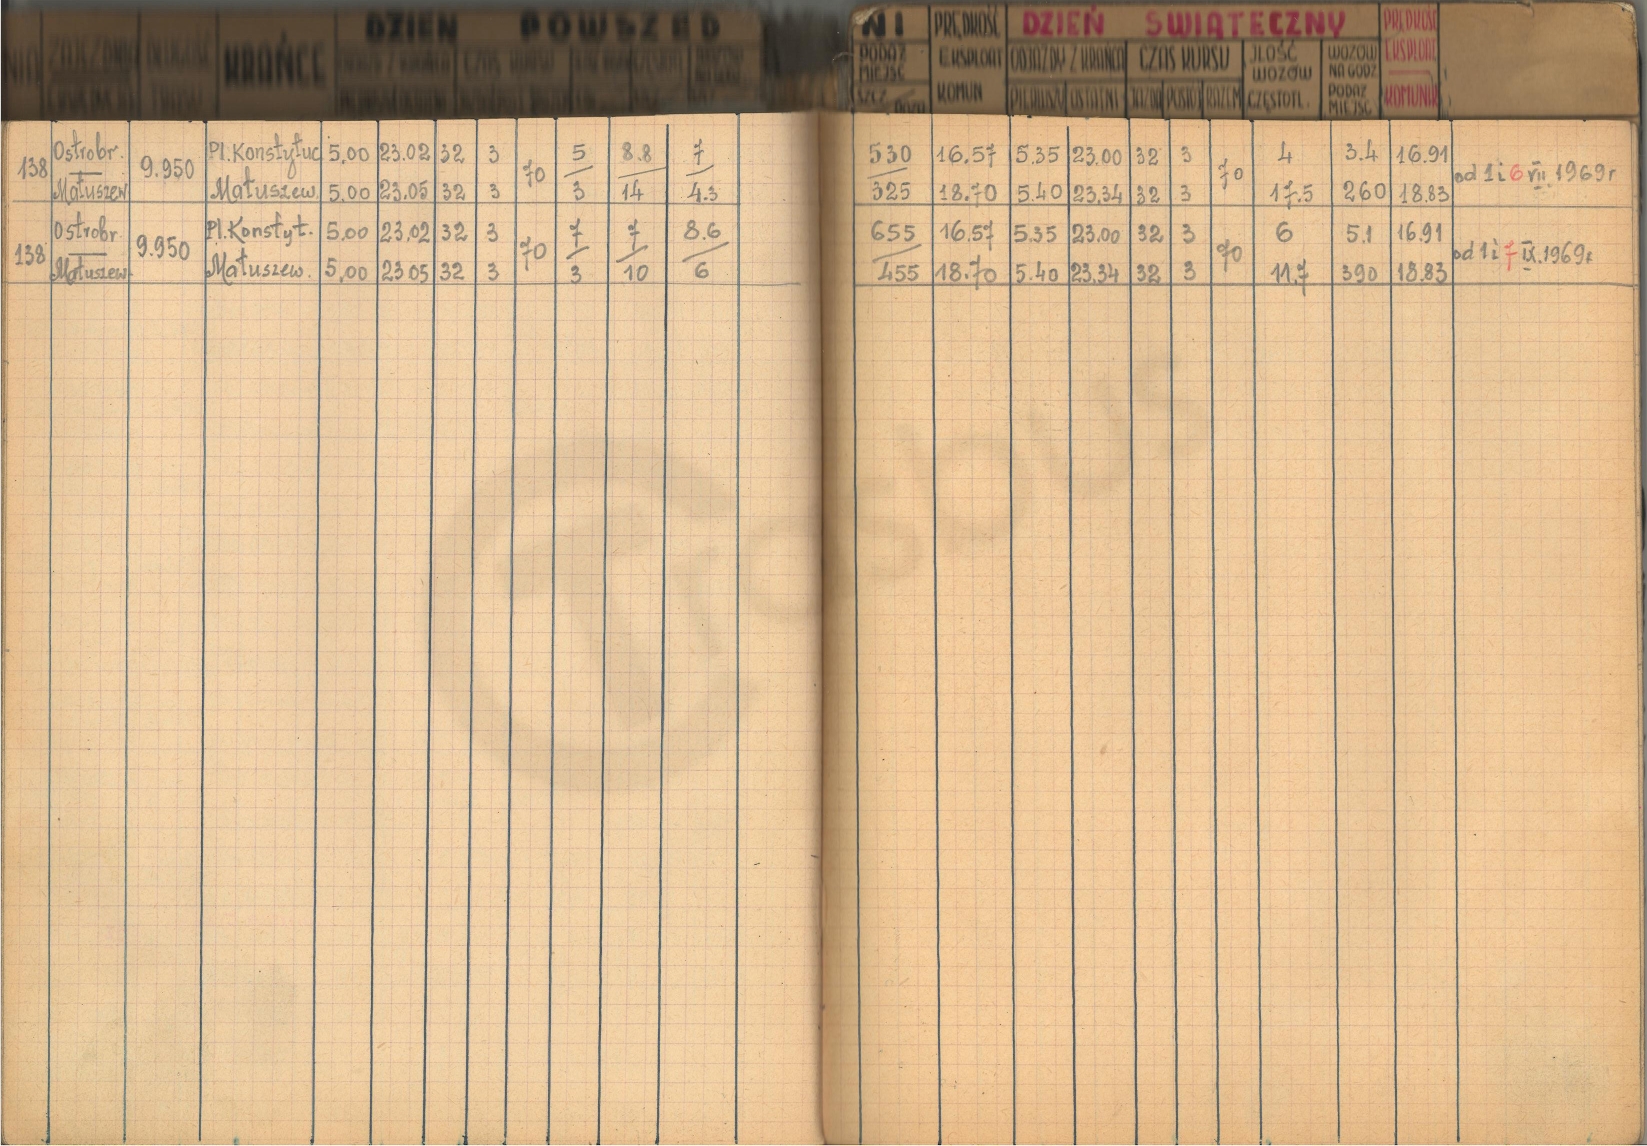 DZIEŃ POWSZED
KRAŃCE
NI PRĘDKOŚĆ DZIEŃ ŚWIĄTECZNY PRĘDKOŚĆ
PODAŻ MIEJSC EKSPLOAT ODJAZDY Z KRAŃCA CZAS KURSU JLOŚĆ WOZÓW WOZÓW NA GODZ EKSPLOAT
KOMUN PIERWSZY OSTATNI JAZDA POSTÓJ RAZEM CZĘSTOTL. PODAŻ MIEJSC KOMUNIK
138 Ostrobr. 9.950 Pl.Konstytuc 5,00 23.02 32 3 70 5 8.8 7 530 16.57 5.35 23.00 32 3 70 4 3.4 16.91 od 1 i 6 VII 1969r
Matuszew Matuszew. 5,00 23.05 32 3 3 14 4.3 325 18.70 5.40 23.34 32 3 17.5 260 18.83
138 Ostrobr. 9.950 Pl.Konstyt. 5,00 23,02 32 3 70 7 7 8.6 655 16.57 5.35 23.00 32 3 70 6 5.1 16.91 od 1 i 7 IX.1969r
Matuszew. Matuszew. 5,00 23 05 32 3 3 10 6 455 18.70 5.40 23.34 32 3 11.7 390 18.83
Trasbus